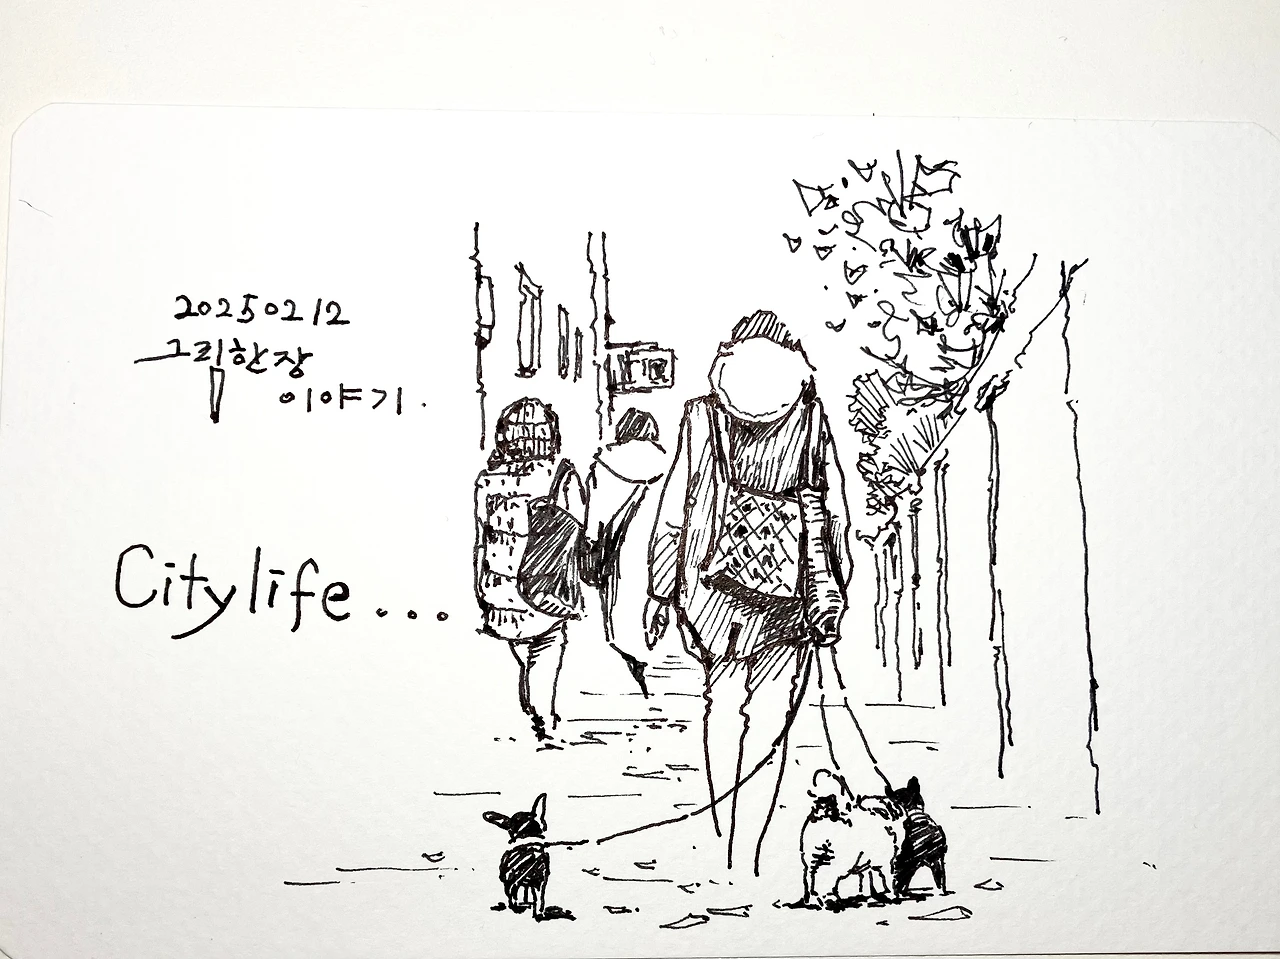 20250212
그림한장
이야기.
Citylife...